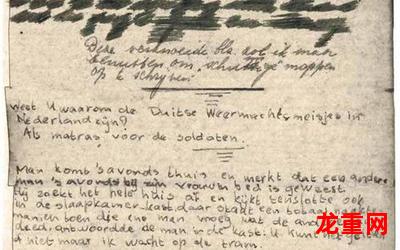 Deze vermoeide blz. zal ik maar
benutten om "schuttige" moppen
op te schrijven
Weet U waarom de Duitse Weermachtsmeisjes in
Nederland zijn?
Als matras voor de soldaten.
Man komt 's avonds thuis en merkt dat een andere
man 's avonds bij zijn vrouw in bed is geweest
Hij zoekt het hele huis af en kijkt tenslotte ook
in de slaapkamerkast, daar staat een totaal naakte
man en toen die ene man vroeg wat de andere daar
deed, antwoordde de man in de kast: U kunt het geloven
of niet maar ik wacht op de tram.
龙重网